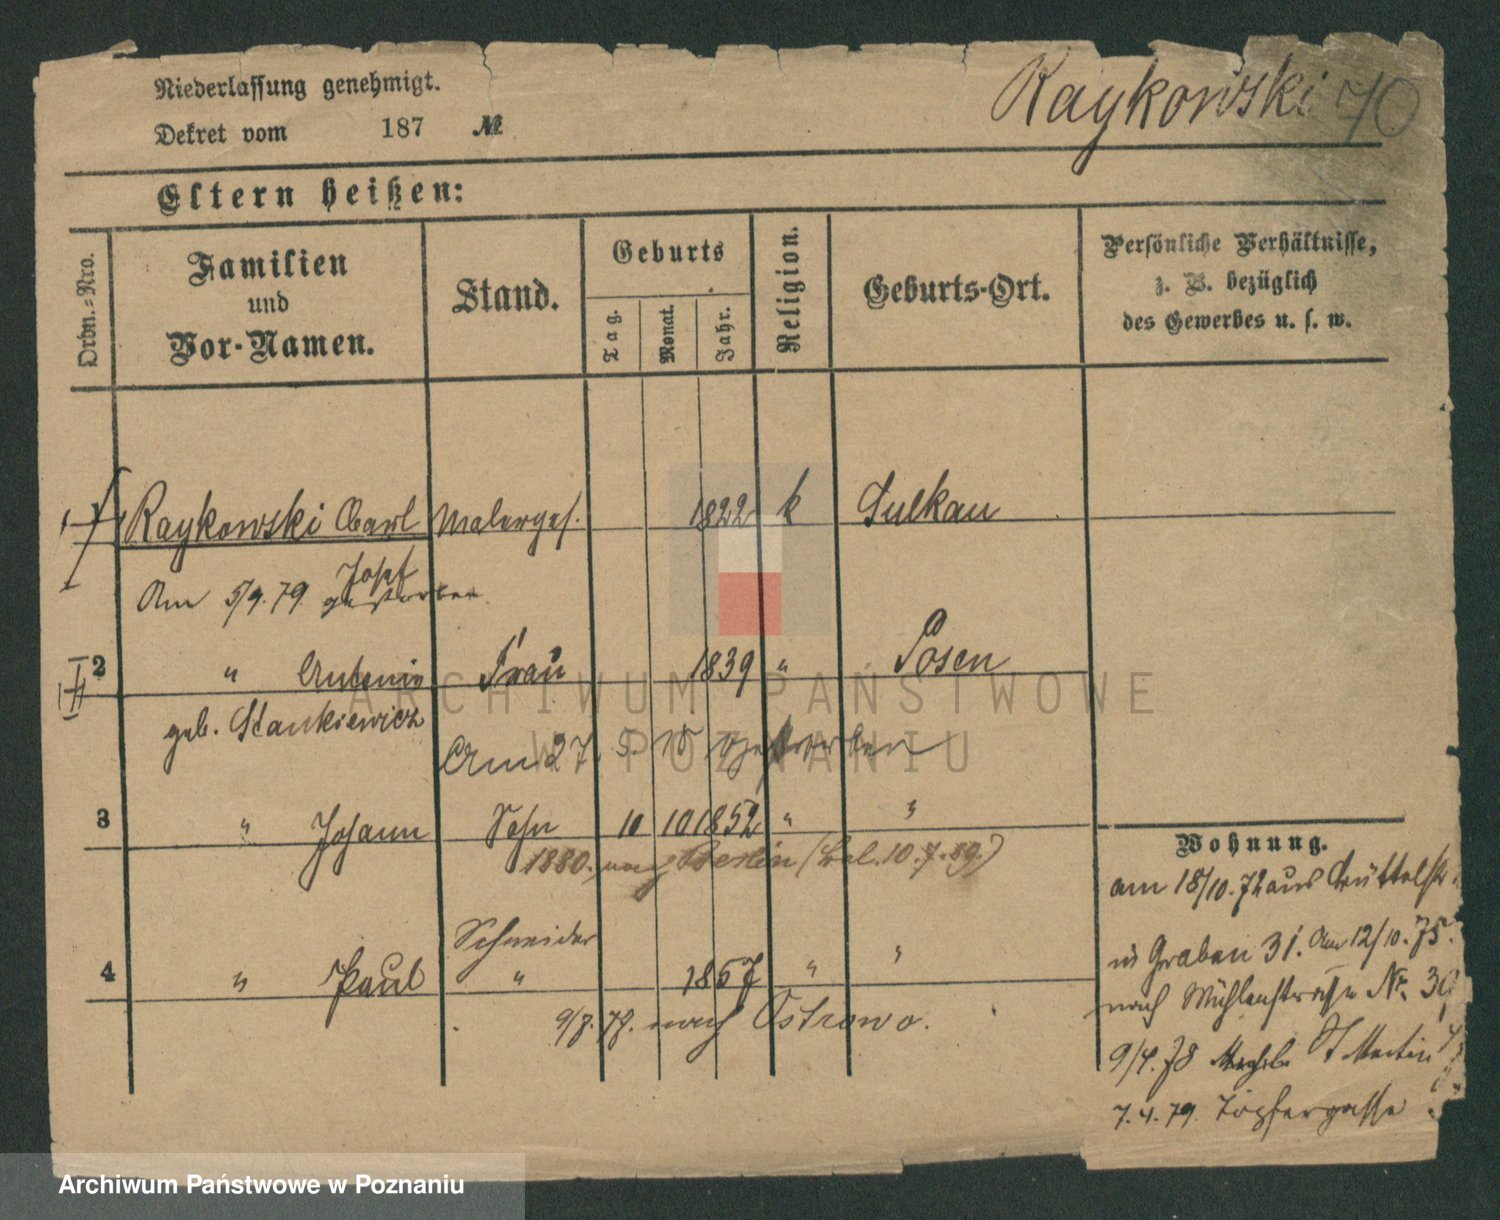 Niederlassung genehmigt.
Raykowski 70
Dekret vom 187 №
Eltern heißen:
Ordn.-Nro.
Familien
und
Vor-Namen.
Stand.
Geburts
Tag.
Monat.
Jahr.
Religion.
Geburts-Ort.
Persönliche Verhältnisse,
z. B. bezüglich
des Gewerbes u. s. w.
1 Raykowski Carl Malerges. 1822 k Sulkau
Josef
Am 5/9. 79. gestorben.
2 " Antonie Frau 1839 " Posen
geb. Stankiewicz
Am 27. 5. gestorben
3 " Johann Sohn 10 10 1852 " "
1880. nach Berlin (Bel. 10.7.89.)
Schneider
4 " Paul " 1857 " "
nach Ostrowo.
Wohnung.
am 18/10. 72 aus Büttelstr
in Graben 31. Am 12/10. 75.
nach Mühlenstraße Nr. 39
9/4. 78 St Martin
7. 4. 79. Töpfergasse
ARCHIWUM PAŃSTWOWE
W POZNANIU
Archiwum Państwowe w Poznaniu